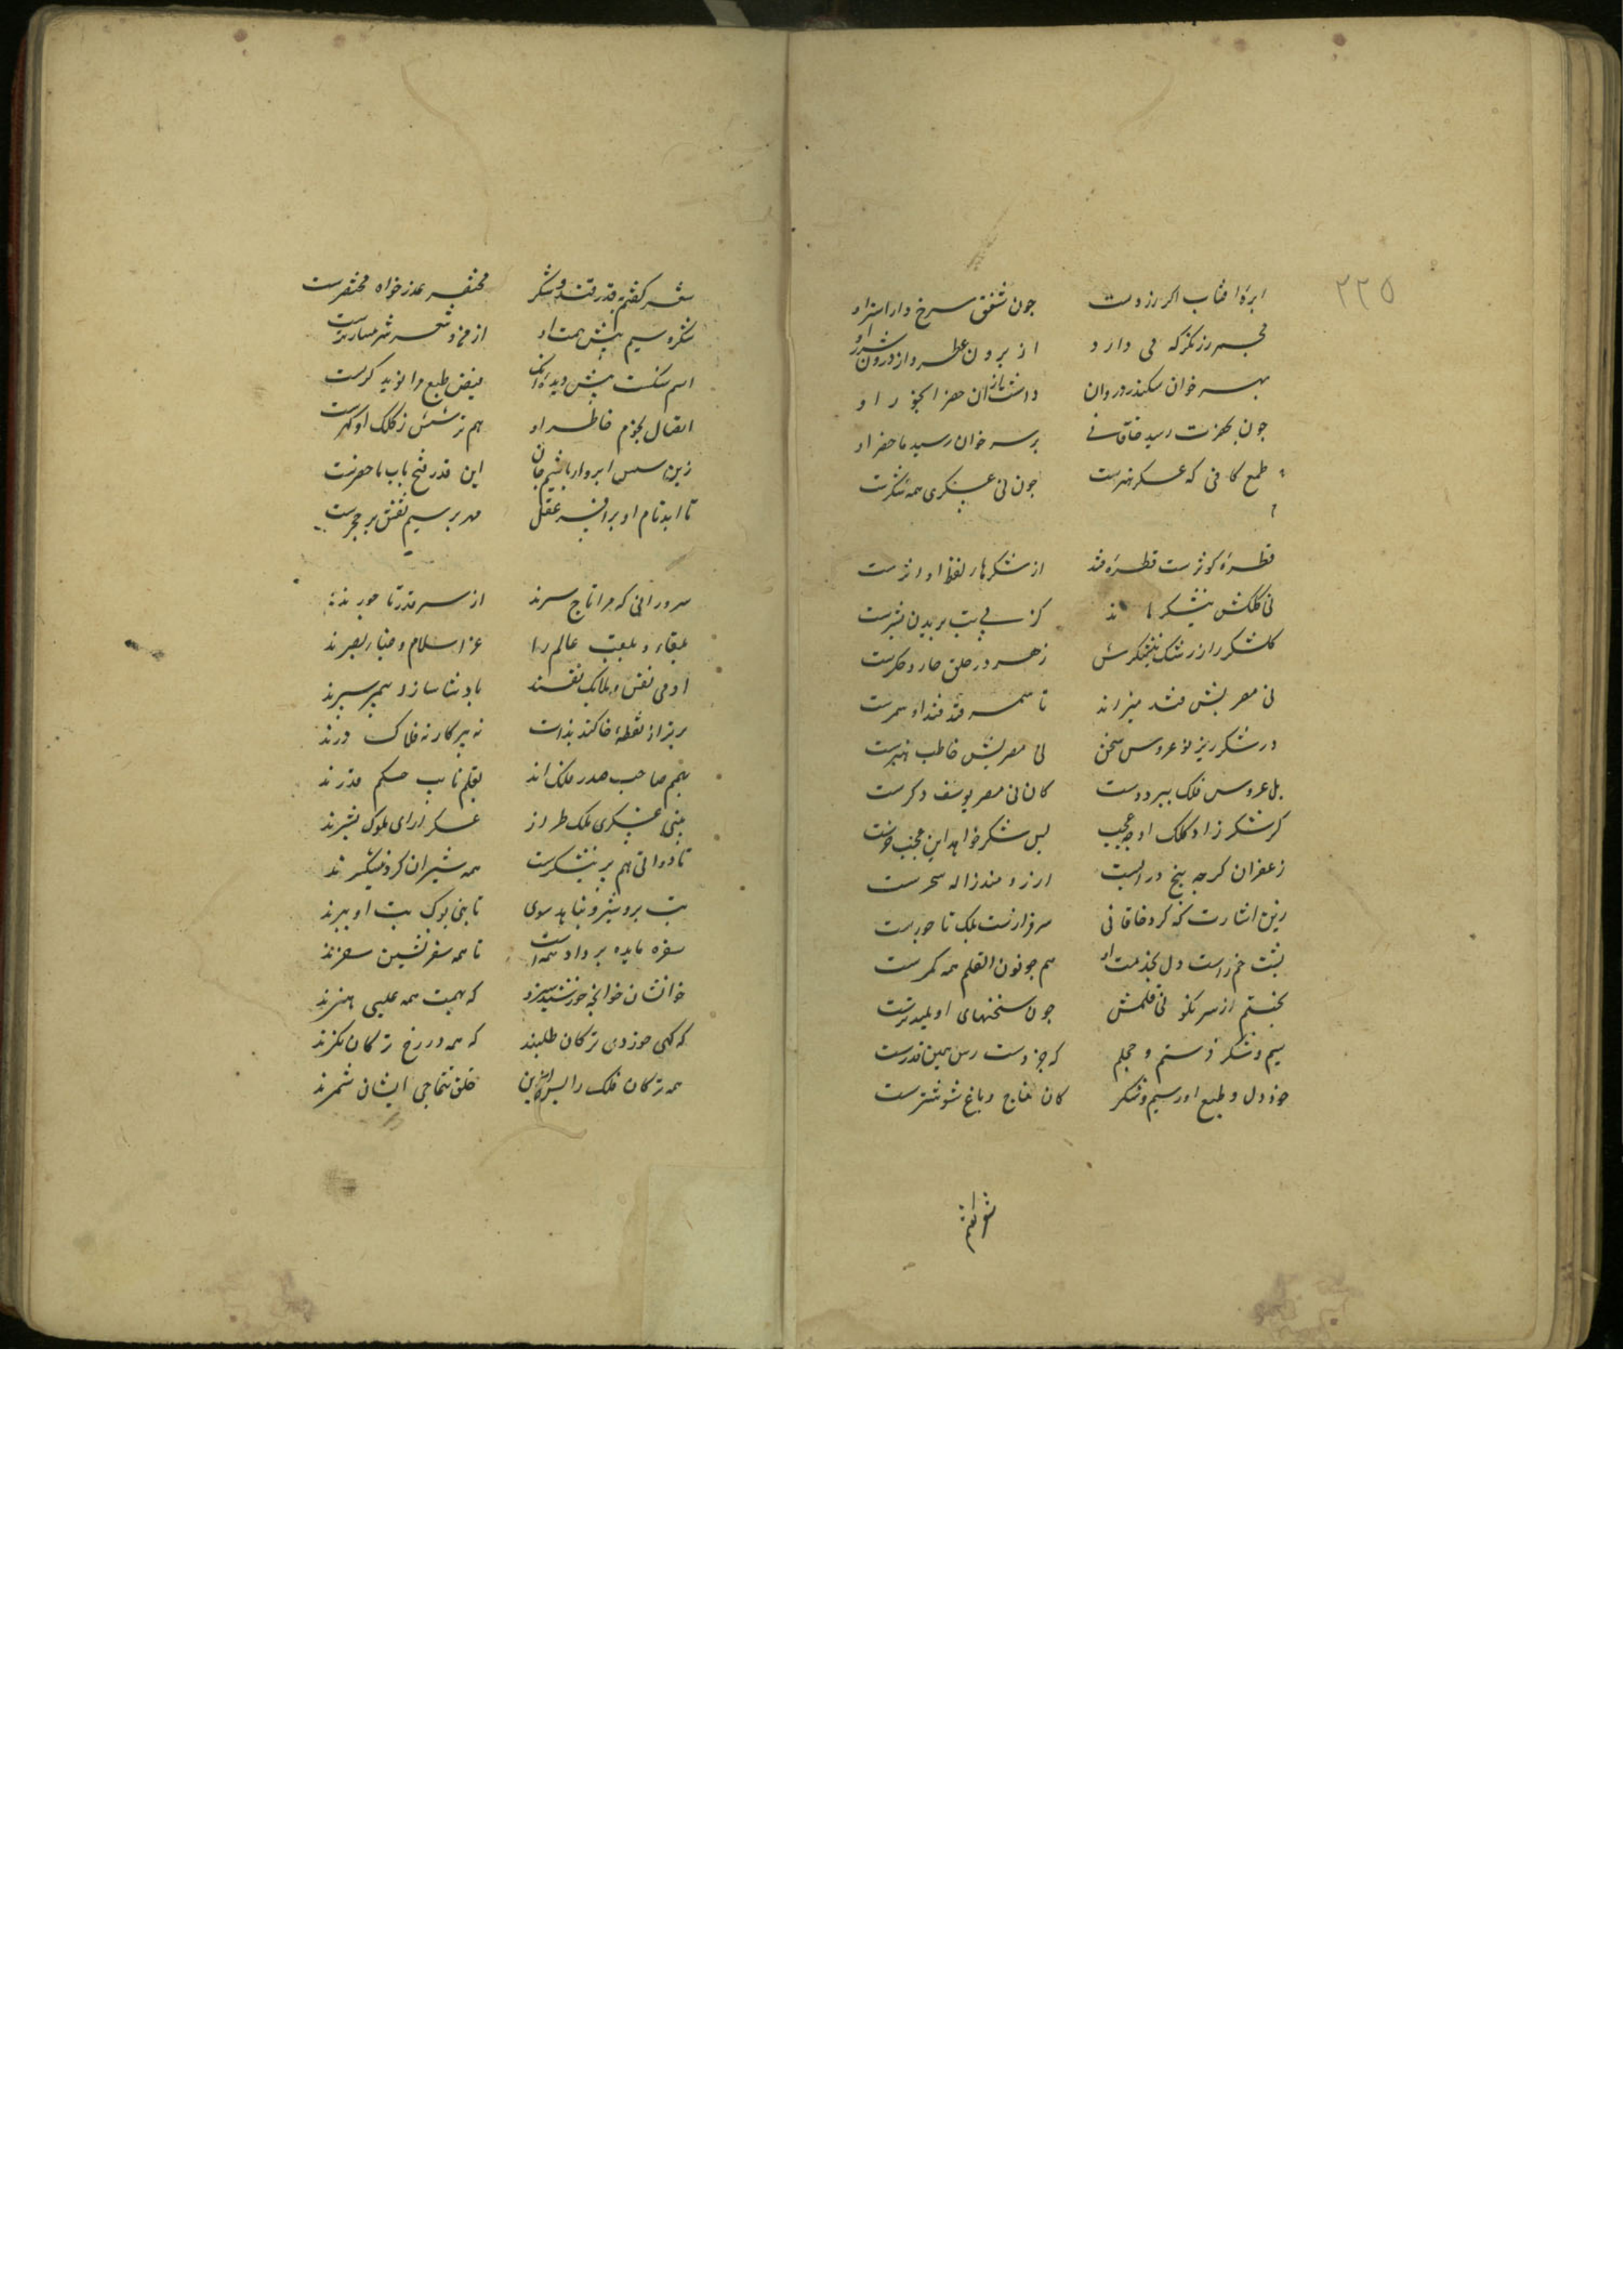 ٢٢٥
ابرهٔ افتاب اکر زردست جون شفق سرخ دار استر او
مجمر زر نکر که می دارد از برون عطر و از درون شرر او
بهر خوان سکندر دوران داشت باز ان خضر
جون بحضرت رسید خاقانی بر سر خوان رسید ماحضر او
طبع کافی که عسکر هنرست جون نی عسکری همه شکرست
قطرهٔ کوثرست قطرهٔ قند از شکرهای لفظ او اثرست
نی کلکش نیشکر ماند کز پی تب بریدن بشرست
کلشکر را ز رشک نیشکرش زهر در حلق خار در جکرست
نی مصریش قند میزاند تا سمر قند قند او سمرست
در شکر ریز نو عروس سخن نی مصریش خاطب هنرست
بل عروس فلک ببرد دست کان نی مصر یوسف دکرست
کر شکر زاد کلک او چه عجب
زعفران کرجه بیخ در ابست ارزومند ژاله سحرست
زین اشارت که کرد خاقانی سرفرازست بلک تاجورست
پشت خم راست دل بخدمت او هم جو نون القلم همه کمرست
بختم از سر نکونی قلمش جون سخنهای او بلندترست
سیم و شکر فرستم و خجلم که جز و دست رس همین قدرست
خود دل و طبع او ز سیم و شکر کان و باغ شوشترست
شعر کفتم بقدر قند و شکر مختصر عذرخواه مختصرست
شکر و سیم پیش همت او از من و شعر شرمسارترست
اسم سنکست پیش دیده انک فیض طبع مرا نوید کرست
اتصال نجوم خاطر او
زین سپس ابروار باشم جان این قدر فتح باب ماحضرست
تا ابد نام او بر افسر عقل مهر بر سیم نقش بر حجرست
سرورانی که مرا تاج سرند از سر قدر تاجورند
بلقا و بلقب عالم را عز اسلام و ضیاء بصرند
ادمی نفس و ملایک نفسند پادشا سار و پیمبر سیرند
برتر از نقطهٔ خاکند بذات نه بپرکار نه فلاک درند
بهمم صاحب صدر فلک اند بقلم نایب حکم قدرند
بنی عسکری ملک طراز عسکر ارای ملوک بشرند
تا دواتی هم بر نیشکرست همه شیران کرو نیشکرند
تب برد شیر و پناهد سوی نی تا بنی بوک تب او ببرند
سفره مایده بر داد تا همه سفر نشین سفرند
خوانشان خوانچه خورشید سزد که بهمت همه عیسی هنرند
که کهی خوردی ترکان طلبند که همه در رخ ترکان نکرند
همه ترکان فلک را پس ازین خلق تتماجی ایشان شمرند